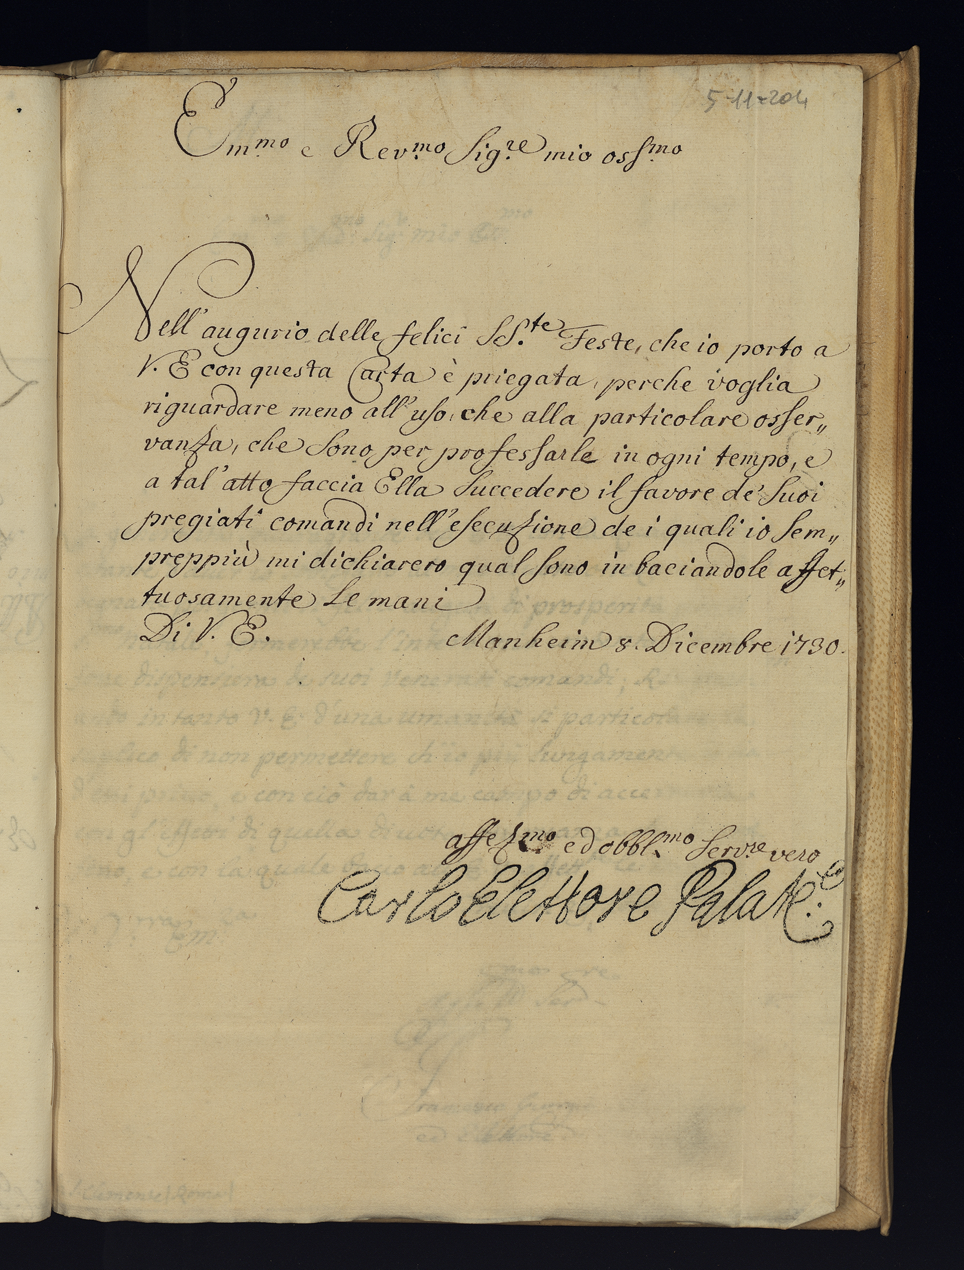 5-11-204
Em.mo e Rev.mo Sig.re mio oss.mo
Nell'augurio delle felici SS.te Feste, che io porto a
V. E con questa Carta è priegata, perche voglia
riguardare meno all'uso, che alla particolare osser„
vanza, che sono per professarle in ogni tempo, e
a tal'atto faccia Ella succedere il favore de' suoi
pregiati comandi nell'esecuzione de i quali io sem„
preppiù mi dichiarero qual sono in baciandole affet„
tuosamente le mani
Di V. E. Manheim 8. Dicembre 1730.
affez.mo ed obbl.mo serv.re vero
Carlo Elettore Palat.